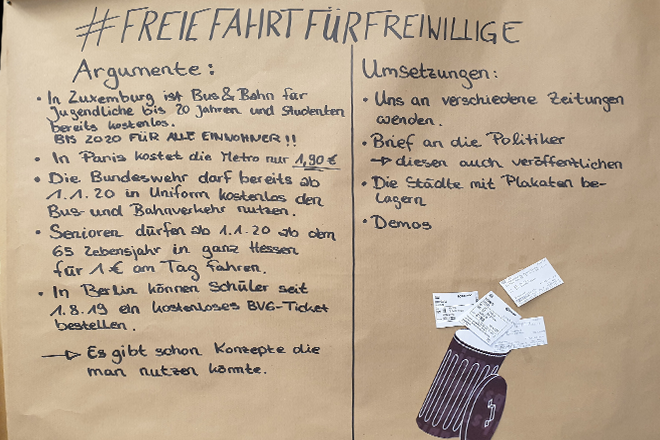 #FREIE FAHRT FÜR FREIWILLIGE
Argumente:
• In Luxemburg ist Bus & Bahn für
Jugendliche bis 20 Jahren und Studenten
bereits kostenlos.
BIS 2020 FÜR ALLE EINWOHNER!!
• In Paris kostet die Metro nur 1,90 €
• Die Bundeswehr darf bereits ab
1.1.20 in Uniform kostenlos den
Bus- und Bahnverkehr nutzen.
• Senioren dürfen ab 1.1.20 ab dem
65 Lebensjahr in ganz Hessen
für 1 € am Tag fahren.
• In Berlin können Schüler seit
1.8.19 ein kostenloses BVG-Ticket
bestellen.
→ Es gibt schon Konzepte die
man nutzen könnte.
Umsetzungen:
• Uns an verschiedene Zeitungen
wenden.
• Brief an die Politiker
→ diesen auch veröffentlichen
• Die Städte mit Plakaten be-
lagern
• Demos